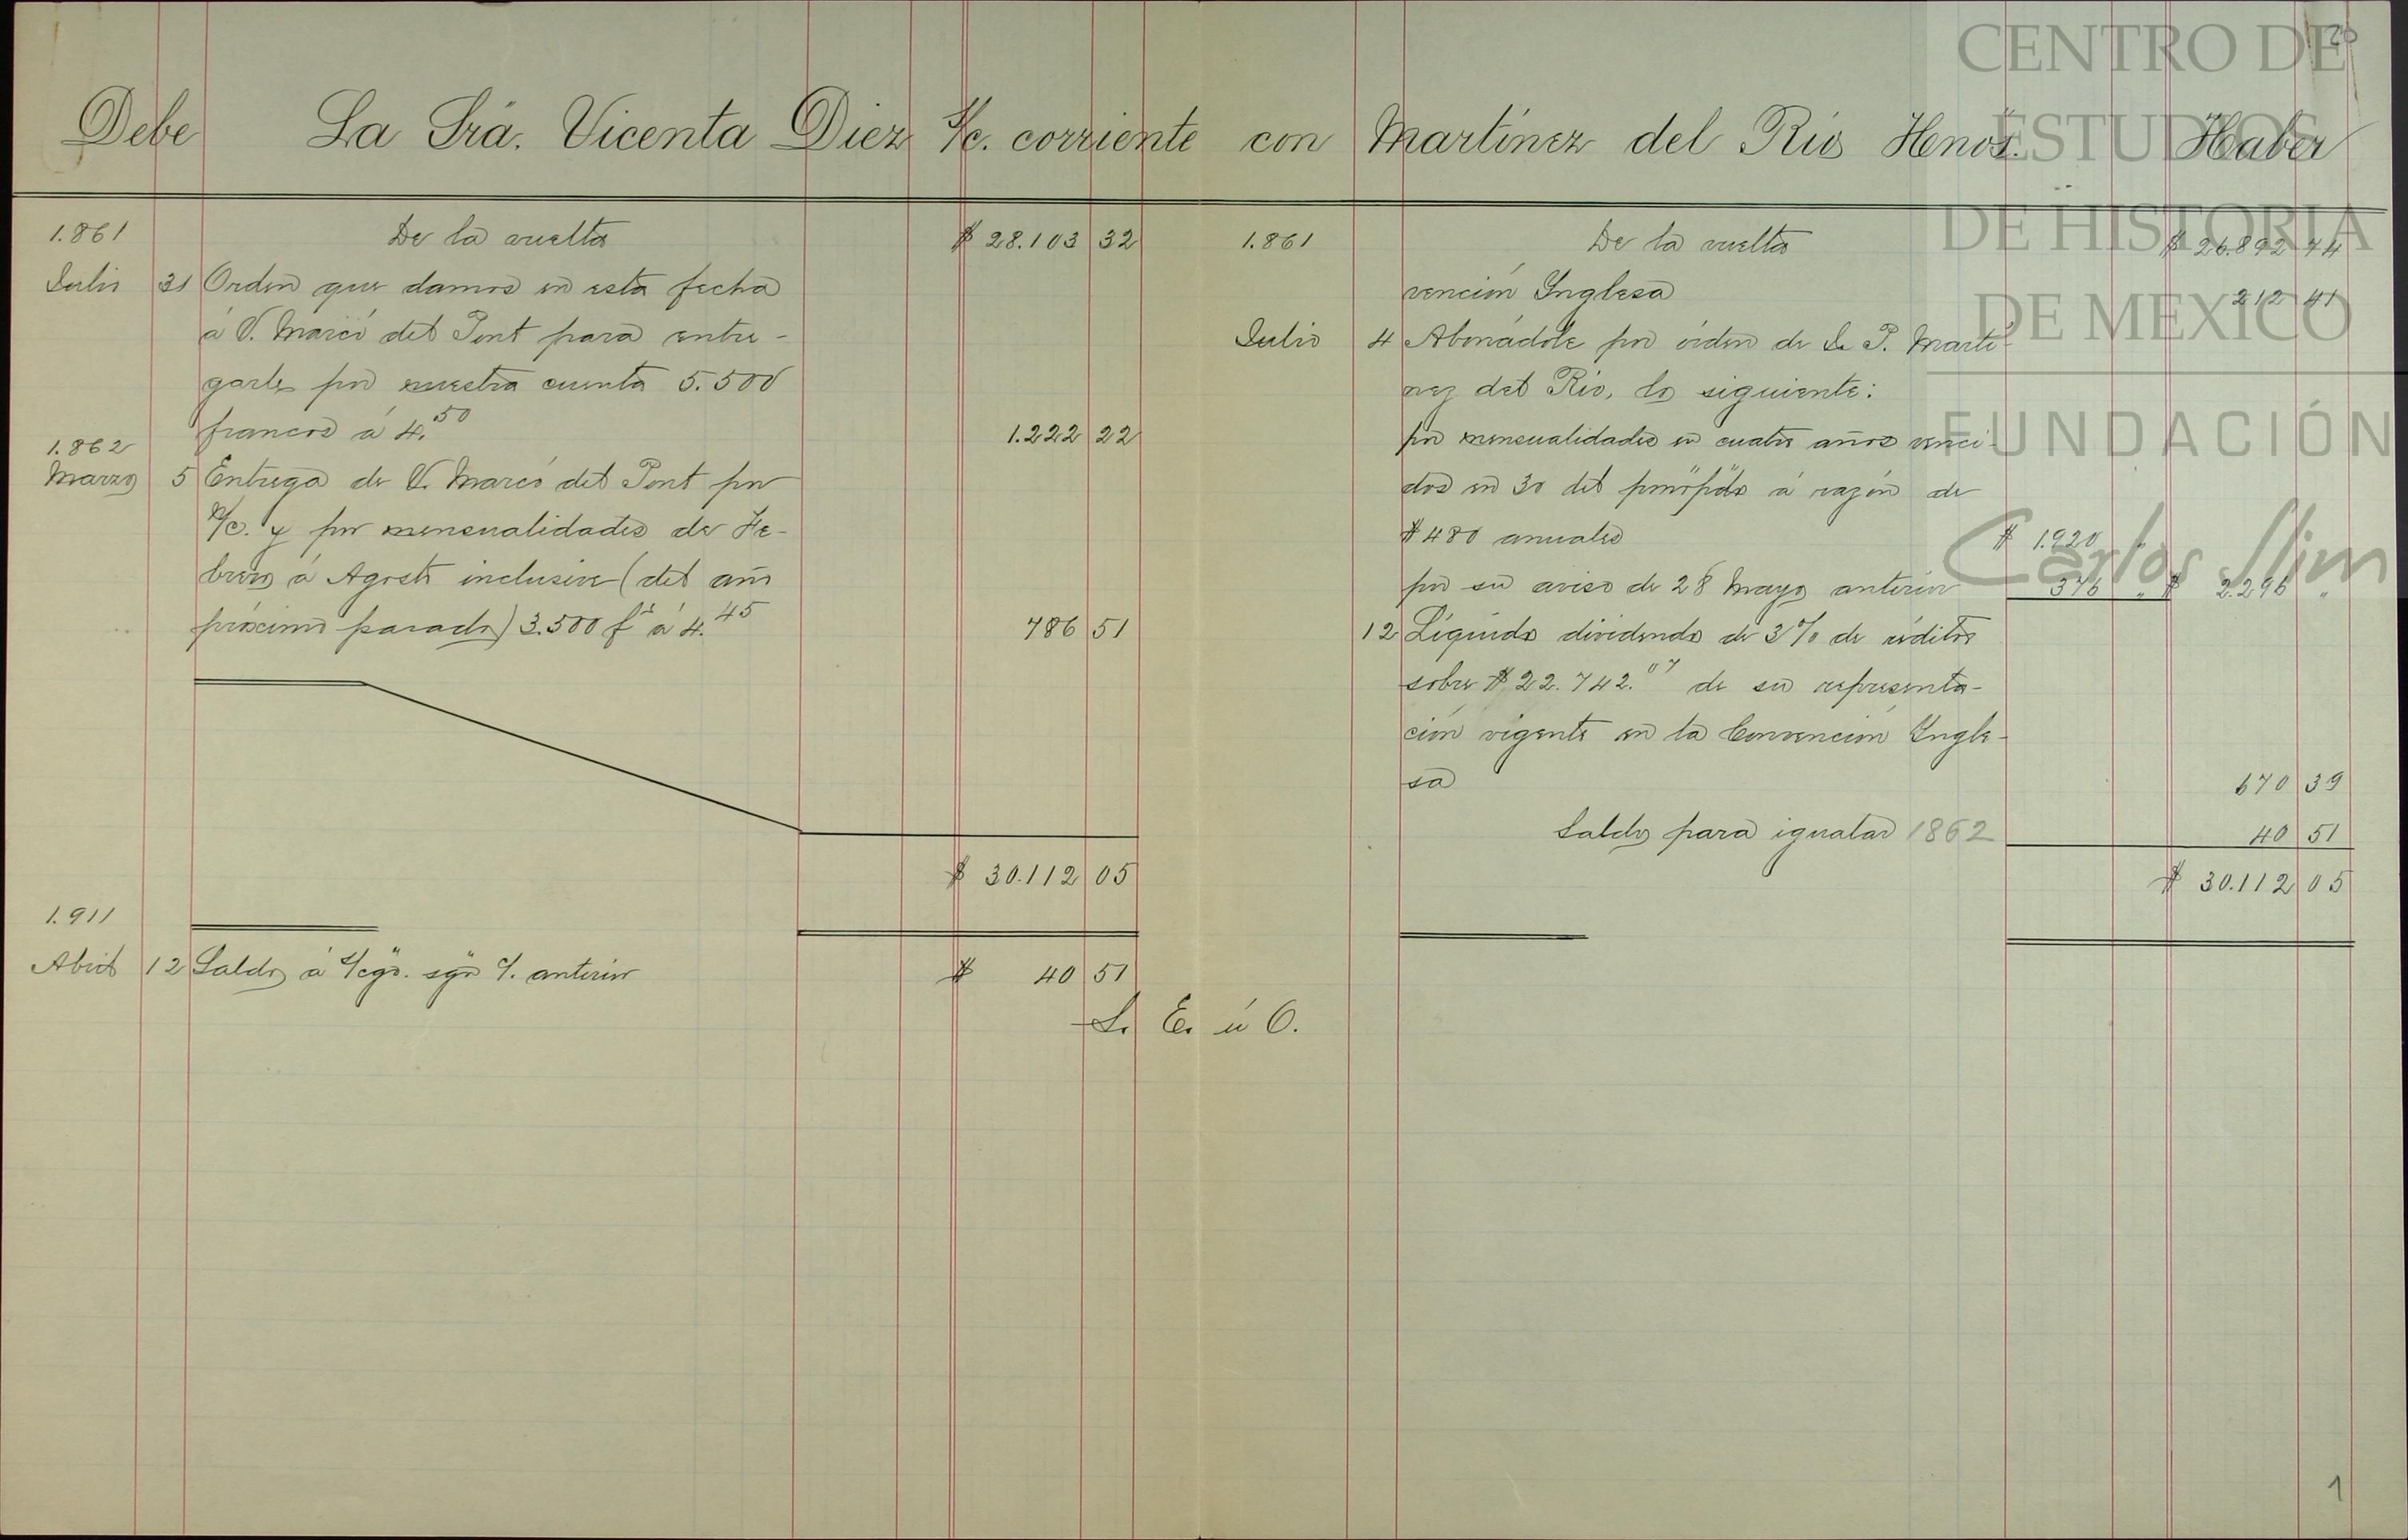 Debe La Srã. Vicenta Diez s/c. corriente con Martínez del Rio Henos. Haber
1.861 De la vuelta $ 28.103 32
Julio 31 Orden que damos en esta fecha
á V. Marcó del Pont para entre-
garle por nuestra cuenta 5.500
francos á 4.50 1.222 22
1.862
Marzo 5 Entrega de V. Marcó del Pont por
n/c. y por mensualidades de Fe-
brero á Agosto inclusive (del año
próximo pasado) 3.500 fs á 4.45 786 51
$ 30.112 05
1.911
Abril 12 Saldo á s/cgo. sgn c/. anterior $ 40 51
S. E. ú O.
1.861 De la vuelta $ 26.892 44
vención Inglesa 212 41
Julio 4 Abonádole por órden de D. P. Martí-
nez del Rio, lo siguiente:
por mensualidades en cuatro años venci-
dos en 30 del pmo ppdo á razón de
$ 480 anuales $ 1.920 "
por su aviso de 28 Mayo anterior 376 " $ 2.296 "
12 Líquido dividendo de 3% de réditos
sobre $ 22.742.07 de su representa-
ción vigente en la Convención Ingle-
sa 670 39
Saldo para igualar 1862 40 51
$ 30.112 05
1
CENTRO DE
ESTUDIOS
DE HISTORIA
DE MEXICO
FUNDACIÓN
Carlos Slim